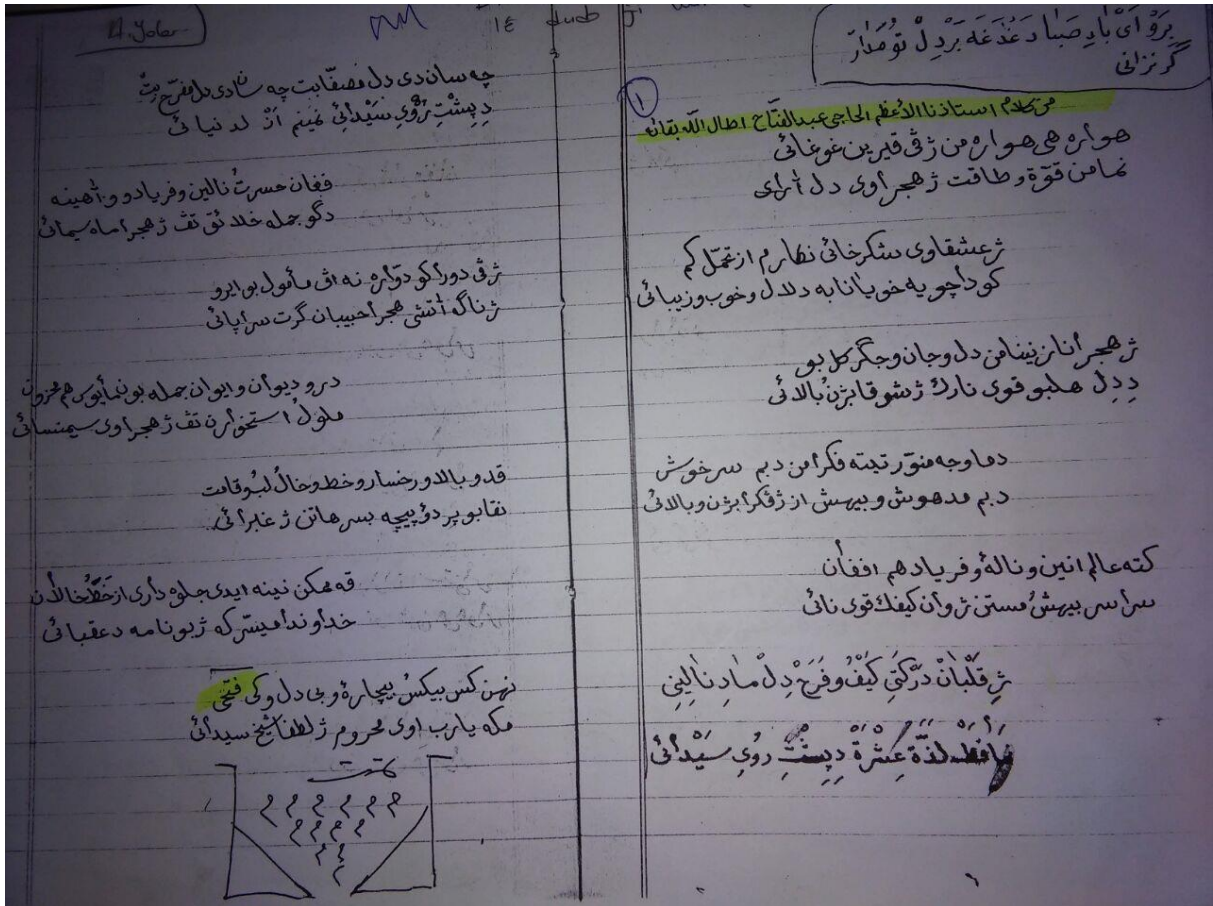 بَرَوْ اَیْ بَادِ صَبَا دَغْدَغَه بَرْدِلْ تُو مَدَارْ
گرنزانی
١
من كلام استاذنا الأعظم الحاجى عبدالفتّاح اطال اللّه بقائه
هواره هى هواره من ژڤى قيرين غوغائى
نمامن قوّة وطاقت ژهجراوى دل أراى
ژعشقاوى شكرخائى نظارم ازتحمّل كم
كوداچويه خويانا به دلال وخوب وزيبائى
ژهجرأنازنينامن دل وجان وجگركل بو
دِدِل هلبو قوى نارك ژشوقابژنُ بالائى
دماوجه منوّر تيته فكرامن دبم سرخوش
دبم مدهوش وبيهش از ژفكرابژن وبالائى
كته عالم انين ونالهٔ وفرياد هم افغان
سراسر بيهشُ مستن ژوان كيفك قوى نائى
ژِقَلْبَانْ دَرْكَتِى كَيْفُ وفَرَحْ دِلْ مَا دِنَالِينِى
لذّة عِشْرَةْ دِپِشْتِ رُوىِ سَيْدَائى
H. Yolar
چه سان دى دل فصفّابت چه شادى دل مفرّح بِتْ
دِپِشْتِ رُوْىِ سَيْدَائِى نمينم اَزْ لدنيائى
فغان حسرتُ نالين وفريادو وأهينه
دگو جمله خلائق تڤ ژهجراماه سيمائى
ژڤى دوراكو دوّاره نه اڤ مأمول بو ايرو
ژناگه أتشى هجرأحبيبان گرت سراپائى
درو ديوان وايوان جمله بونمأيوس هم محزون
ملولُ استخوارن تڤ ژهجراوى سيمتسائى
قدو بالاو رخسار وخط وخالُ لبُ وقامت
نقابو پردۀ پيچه بسرهاتن ژغابرائى
قه ممكن نينه ايدى جلوه دارى ازخطُّ خالأن
خداوندأميسّركه ژبونامه دعقبائى
نهن كس بيكسُ بيچارۀ وبى دل وكى فتحى
مكه يارب اوى محروم ژلطفاشيخ سيدائى
تمت
م م م م م م
م م م م